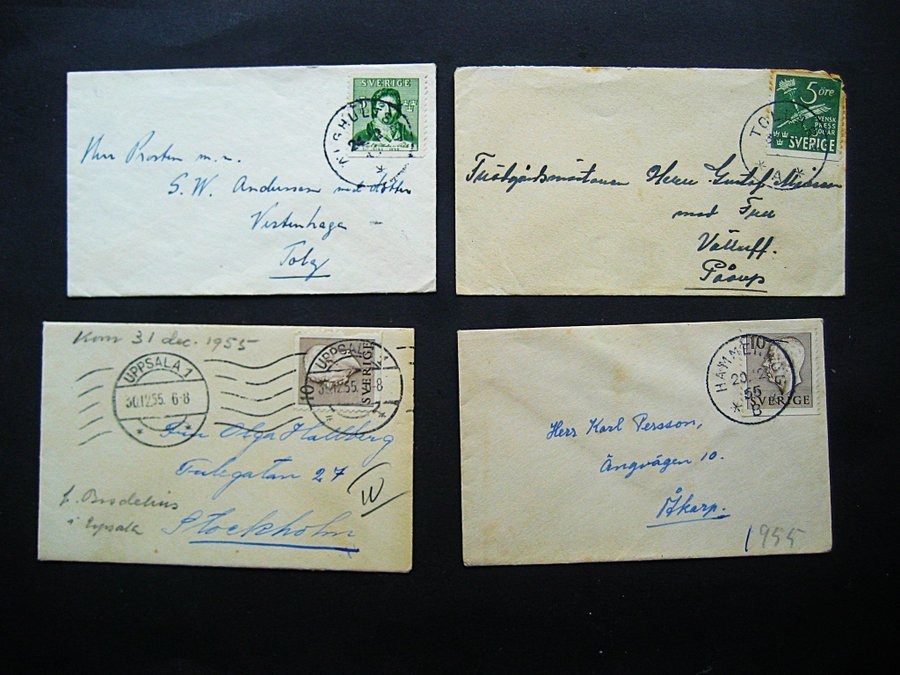 SVERIGE
Herr Prosten m.m.
S. W. Andersson med dotter
Vestenhaga
Toby
5 öre
SVENSK
PRESS
300 ÅR
SVERIGE
TO
A
Herr Gustaf
med Fru
Påarp
Kom 31 dec. 1955
UPPSALA 1
30.12.55. 6-8
UPPSALA 1
30.12.55. 6-8
10
SVERIGE
Fru Olga Hallberg
Tulegatan 27
Stockholm
f. Brodelius
i Uppsala
10
SVERIGE
55
B
Herr Karl Persson,
Ängvägen 10.
Åkarp.
1955